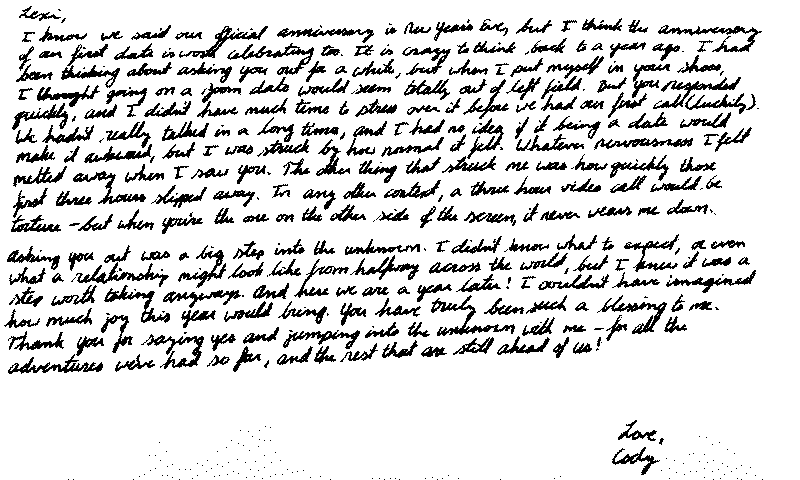 Lexi,
I know we said our official anniversary is New Years Eve, but I think the anniversary
of our first date is worth celebrating too. It is crazy to think back to a year ago. I had
been thinking about asking you out for a while, but when I put myself in your shoes,
I thought going on a zoom date would seem totally out of left field. But you responded
quickly, and I didn't have much time to stress over it before we had our first call (luckily).
We hadn't really talked in a long time, and I had no idea if it being a date would
make it awkward, but I was struck by how normal it felt. Whatever nervousness I felt
melted away when I saw you. The other thing that struck me was how quickly those
first three hours slipped away. In any other context, a three hour video call would be
torture - but when you're the one on the other side of the screen, it never wears me down.
Asking you out was a big step into the unknown. I didn't know what to expect, or even
what a relationship might look like from halfway across the world, but I knew it was a
step worth taking anyways. And here we are a year later! I wouldn't have imagined
how much joy this year would bring. You have truly been such a blessing to me.
Thank you for saying yes and jumping into the unknown with me - for all the
adventures we've had so far, and the rest that are still ahead of us!
Love,
Cody